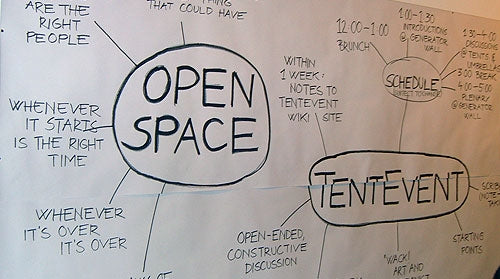 ARE THE
RIGHT
PEOPLE
THAT COULD HAVE
OPEN
SPACE
WHENEVER
IT STARTS
IS THE RIGHT
TIME
WHENEVER
IT'S OVER
IT'S OVER
WITHIN
1 WEEK:
NOTES TO
TENTEVENT
WIKI SITE
12:00-1:00
BRUNCH
1:00-1:30
INTRODUCTIONS
@ GENERATOR
WALL
1:30-4:00
DISCUSSIONS
@ TENTS &
UMBRELLAS
3:00 BREAK
4:00-5:00
PLENARY
@ GENERATOR
WALL
SCHEDULE
TENTEVENT
OPEN-ENDED,
CONSTRUCTIVE
DISCUSSION
"WACK!
ART AND
STARTING
POINTS